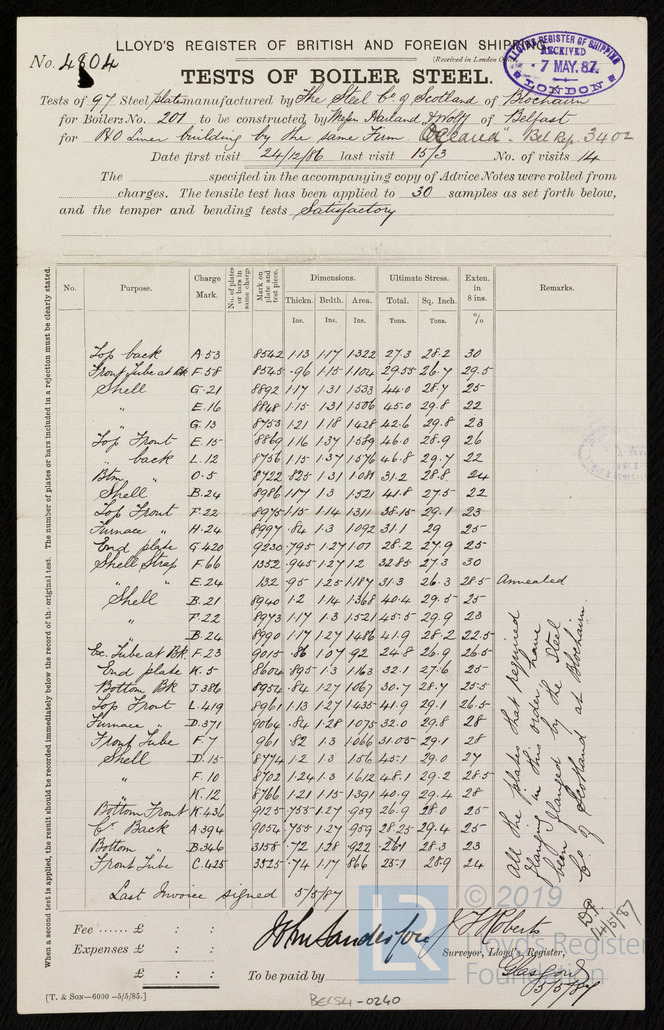 LLOYD'S REGISTER OF BRITISH AND FOREIGN SHIPPING.
No. 4804
(Received in London O
LLOYD'S REGISTER OF SHIPPING
RECEIVED
7 MAY. 87
LONDON
TESTS OF BOILER STEEL.
Tests of 97 Steel plates manufactured by The Steel Co of Scotland of Blochairn
for Boilers No. 201 to be constructed by Messrs Harland & Wolff of Belfast
for P&O Liner building by the same Firm "Oceana" - Bel Rep. 3402
Date first visit 24/12/86 last visit 15/3 No. of visits 14
The specified in the accompanying copy of Advice Notes were rolled from
charges. The tensile test has been applied to 30 samples as set forth below,
and the temper and bending tests Satisfactory
When a second test is applied, the result should be recorded immediately below the record of the original test. The number of plates or bars included in a rejection must be clearly stated.
No. Purpose. Charge Mark. No. of plates or bars in same charge Mark on plate and test piece. Dimensions. Ultimate Stress. Exten. in 8 ins. Remarks.
Thickn. Brdth. Area. Total. Sq. Inch.
Ins. Ins. Ins. Tons. Tons. %
Top back A.53 8542 1.13 1.17 1.322 27.3 28.2 30
Front Tube at Bk F.58 8545 .96 1.15 1.104 29.55 26.7 29.5
Shell G.21 8892 1.17 1.31 1.533 44.0 28.7 25
" E.16 8848 1.15 1.31 1.506 45.0 29.8 22
" G.13 8753 1.21 1.18 1.428 42.6 29.8 23
Top Front E.15 8869 1.16 1.37 1.589 46.0 28.9 26
" back L.12 8756 1.15 1.37 1.576 46.8 29.7 22
Btm " O.5 8722 .825 1.31 1.081 31.2 28.8 24
Shell B.24 8986 1.17 1.3 1.521 41.8 27.5 22
Top Front F.22 8975 1.15 1.14 1.311 38.15 29.1 23
Furnace " H.24 8997 .84 1.3 1.092 31.1 29 25
End plate G.420 9230 .795 1.27 1.01 28.2 27.9 25
Shell Strap F.66 1352 .945 1.27 1.2 32.85 27.3 30
" " E.24 132 .95 1.25 1.187 31.3 26.3 28.5 Annealed
Shell B.21 8940 1.2 1.14 1.368 40.4 29.5 25
" F.22 8973 1.17 1.3 1.521 45.5 29.9 23
" B.24 8990 1.17 1.27 1.486 41.9 28.2 22.5
Ec. Tube at Bk. F.23 9015 .86 1.07 .92 24.8 26.9 26.5
End plate K.5 8604 .895 1.3 1.163 32.1 27.6 25
Bottom Bk J.386 8952 .84 1.27 1.067 30.7 28.7 25.5
Top Front L.419 8961 1.13 1.27 1.435 41.9 29.1 26.5
Furnace " D.371 9064 .84 1.28 1.075 32.0 29.8 28
Front Tube F.7 961 .82 1.3 1.066 31.05 29.1 28
Shell D.15 8774 1.2 1.3 1.56 45.1 29.0 27
" F.10 8702 1.24 1.3 1.612 48.1 29.2 28.5
" K.12 8766 1.21 1.15 1.391 40.9 29.4 28
Bottom Front K.436 9125 .755 1.27 .959 26.9 28.0 25
Co Back A.394 9054 .755 1.27 .959 28.25 29.4 25
Bottom " B.346 3158 .72 1.28 .922 26.1 28.3 23
Front Tube C.425 3525 .74 1.17 .866 25.1 28.9 24
All the plates that required
flanging in this order have
been flanged by the Steel
Co. of Scotland at Blochairn.
Last Invoice signed 5/5/87
14/5/87
Fee ...... £ : :
Expenses £ : :
£ : :
John Sanderson
J F Roberts
Surveyor, Lloyd's Register,
Glasgow
To be paid by
5/5/87
[T. & Son—6000 –5/5/85.]
BECS4-0240
LR
© 2019
Lloyd's Register
Foundation